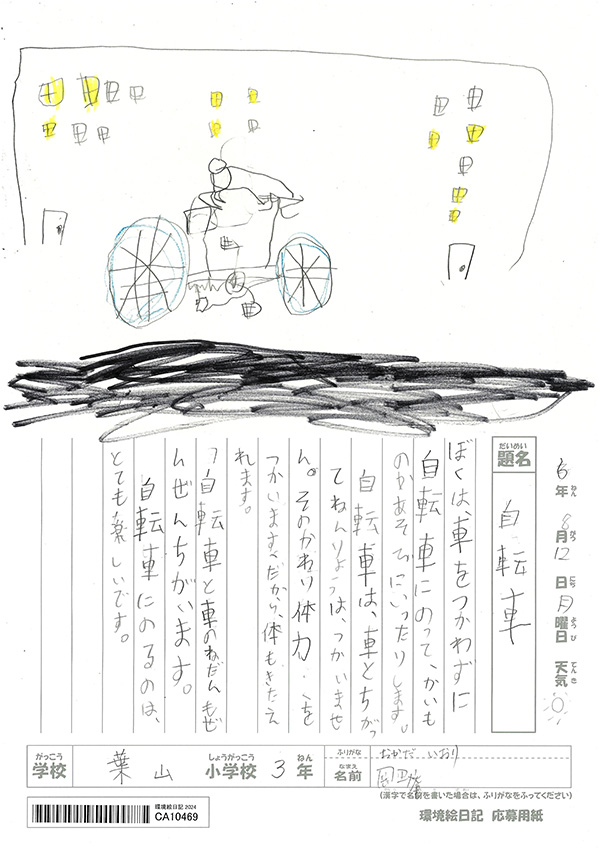 6年 8月12日 月曜日 天気
ねん がつ にち ようび てんき
だいめい
題名
自転車
ぼくは、車をつかわずに
自転車にのって、かいも
のかあそびにいったりします。
自転車は、車とちがっ
てねんりょうは、つかいませ
ん。そのかわり体力を
つかいます。だから、体もきたえ
れます。
自転車と車のねだんもぜ
んぜんちがいます。
自転車にのるのは、
とても楽しいです。
がっこう しょうがっこう ねん
学校 葉山 小学校 3年
ふりがな おかだ いおり
なまえ
名前 岡田
(漢字で名前を書いた場合は、ふりがなをふってください)
環境絵日記 2024
CA10469
環境絵日記 応募用紙